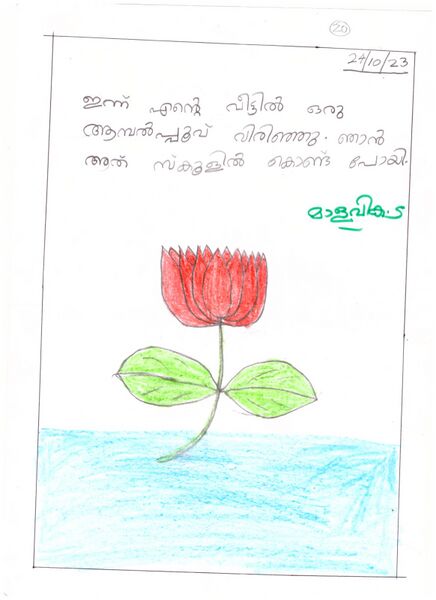 20
24/10/23
ഇന്ന് എന്റെ വീട്ടിൽ ഒരു
ആമ്പൽപ്പൂവ് വിരിഞ്ഞു. ഞാൻ
അത് സ്കൂളിൽ കൊണ്ട് പോയി.
മാളവിക.ട